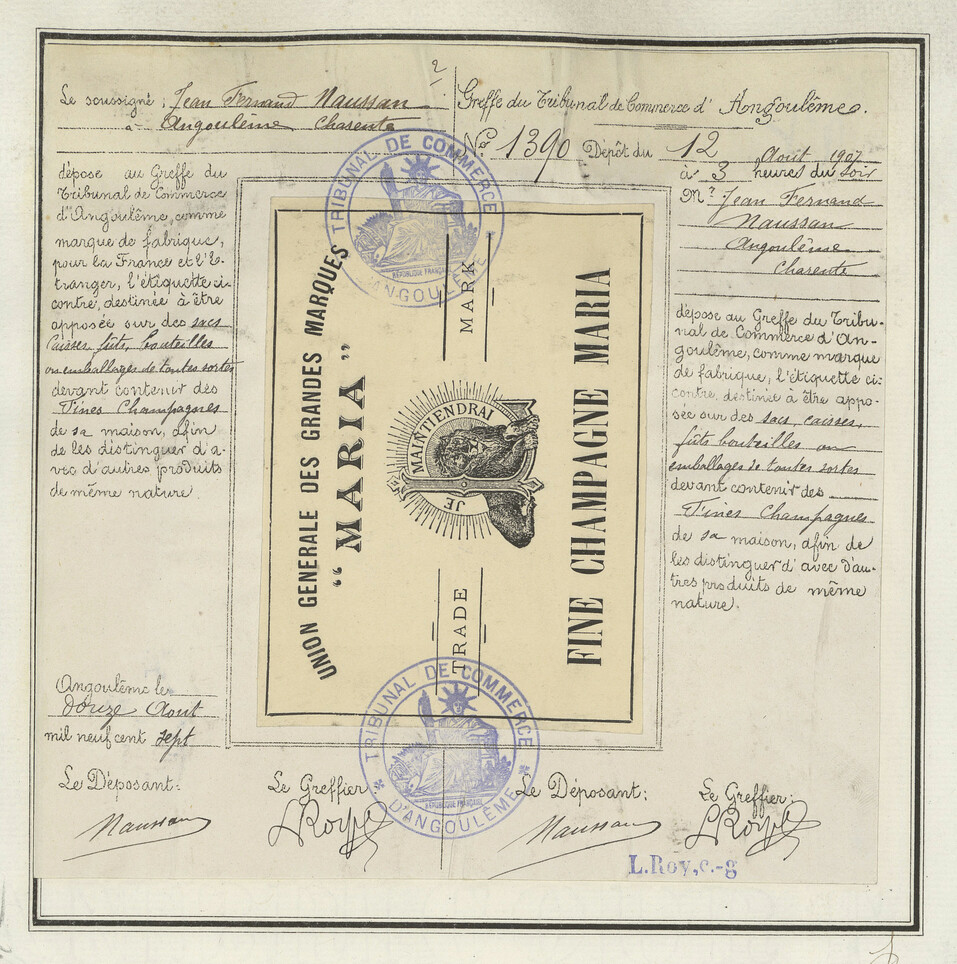 2
Le soussigné, Jean Fernand Naussan
à Angoulême Charente
dépose au Greffe du
Tribunal de Commerce
d'Angoulême, comme
marque de fabrique,
pour la France et l'é-
tranger, l'étiquette ci-
contre, destinée à être
apposée sur des sacs
caisses, fûts, bouteilles
ou emballages de toutes sortes
devant contenir des
Fines Champagnes
de sa maison, afin
de les distinguer d'a-
vec d'autres produits
de même nature.
Angoulême le
douze Août
mil neuf cent sept
Le Déposant:
Naussan
Le Greffier
LRoy
TRIBUNAL DE COMMERCE
RÉPUBLIQUE FRANÇAISE
D'ANGOULÊME
UNION GENERALE DES GRANDES MARQUES
“ MARIA ”
TRADE MARK
JE MAINTIENDRAI
FINE CHAMPAGNE MARIA
TRIBUNAL DE COMMERCE
RÉPUBLIQUE FRANÇAISE
D'ANGOULÊME
Greffe du Tribunal de Commerce d'Angoulême.
N° 1390 Dépôt du 12
Août 1907
à 3 heures du soir
Mr Jean Fernand
Naussan
Angoulême
Charente
dépose au Greffe du Tribu-
nal de Commerce d'An-
goulême, comme marque
de fabrique, l'étiquette ci-
contre, destinée à être appo-
sée sur des sacs, caisses,
fûts bouteilles ou
emballages de toutes sortes
devant contenir des
Fines Champagnes
de sa maison, afin de
les distinguer d'avec d'au-
tres produits de même
nature.
Le Déposant:
Naussan
Le Greffier:
LRoy
L.Roy, c.-g